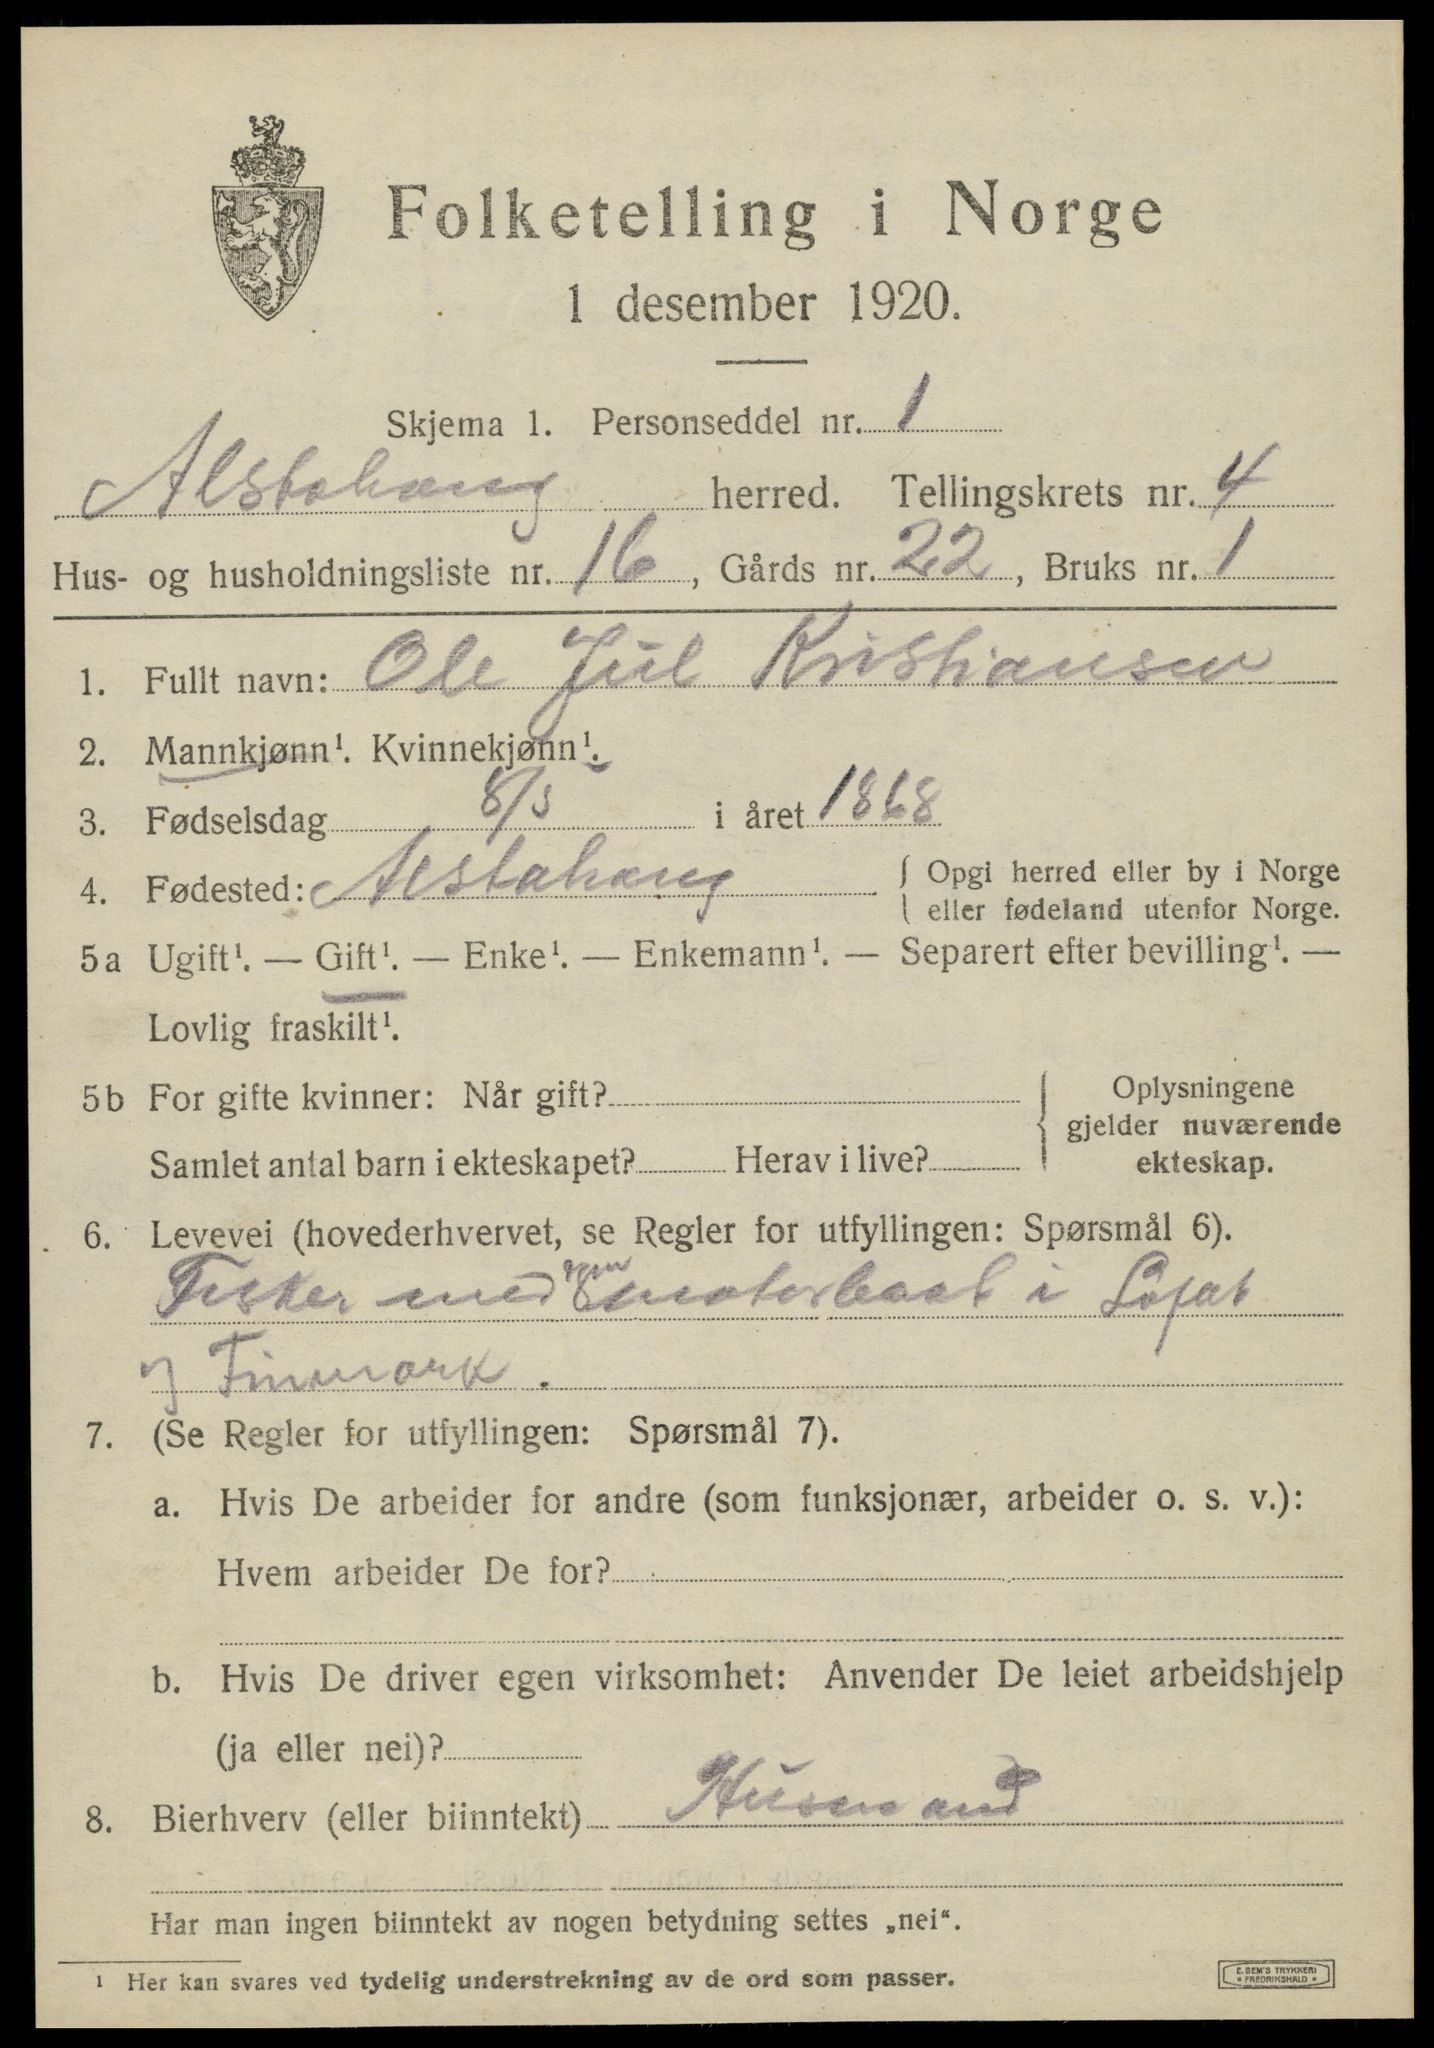 Folketelling i Norge
1 desember 1920.
Skjema 1. Personseddel nr. 1
Alstahaug herred. Tellingskrets nr. 4
Hus- og husholdningsliste nr. 16, Gårds nr. 22, Bruks nr. 1
1. Fullt navn: Ole Jul Kristiansen
2. Mannkjønn¹. Kvinnekjønn¹.
3. Fødselsdag 8/3 i året 1868
4. Fødested: Alstahaug { Opgi herred eller by i Norge
eller fødeland utenfor Norge.
5a Ugift¹. — Gift¹. — Enke¹. — Enkemann¹. — Separert efter bevilling¹. —
Lovlig fraskilt¹.
5b For gifte kvinner: Når gift? { Oplysningene
gjelder nuværende
Samlet antal barn i ekteskapet? Herav i live? ekteskap.
6. Levevei (hovederhvervet, se Regler for utfyllingen: Spørsmål 6).
Fisker med motorbaat i Lofot
og Finmark.
7. (Se Regler for utfyllingen: Spørsmål 7).
a. Hvis De arbeider for andre (som funksjonær, arbeider o. s. v.):
Hvem arbeider De for?
b. Hvis De driver egen virksomhet: Anvender De leiet arbeidshjelp
(ja eller nei)?
8. Bierhverv (eller biinntekt) Husmand
Har man ingen biinntekt av nogen betydning settes „nei“.
¹ Her kan svares ved tydelig understrekning av de ord som passer.
E. SEM'S TRYKKERI
• FREDRIKSHALD •